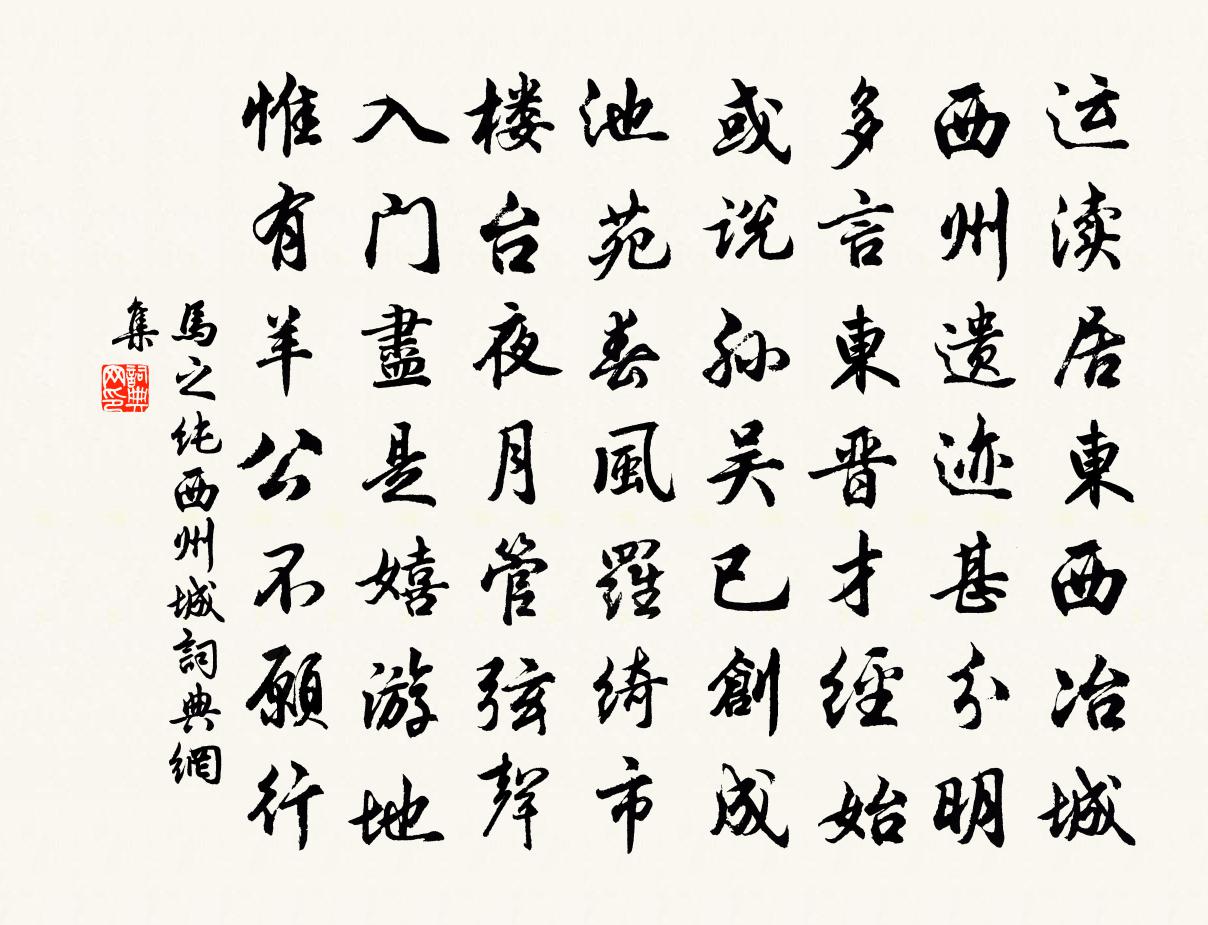 运渎居東西冶城
西州遗迹甚分明
多言東晋才經始
或说孙吴已創成
池苑春風羅綺市
楼台夜月管弦聲
入门盡是嬉游地
惟有羊公不願行
馬之纯西州城詞典網
集
詞典网印